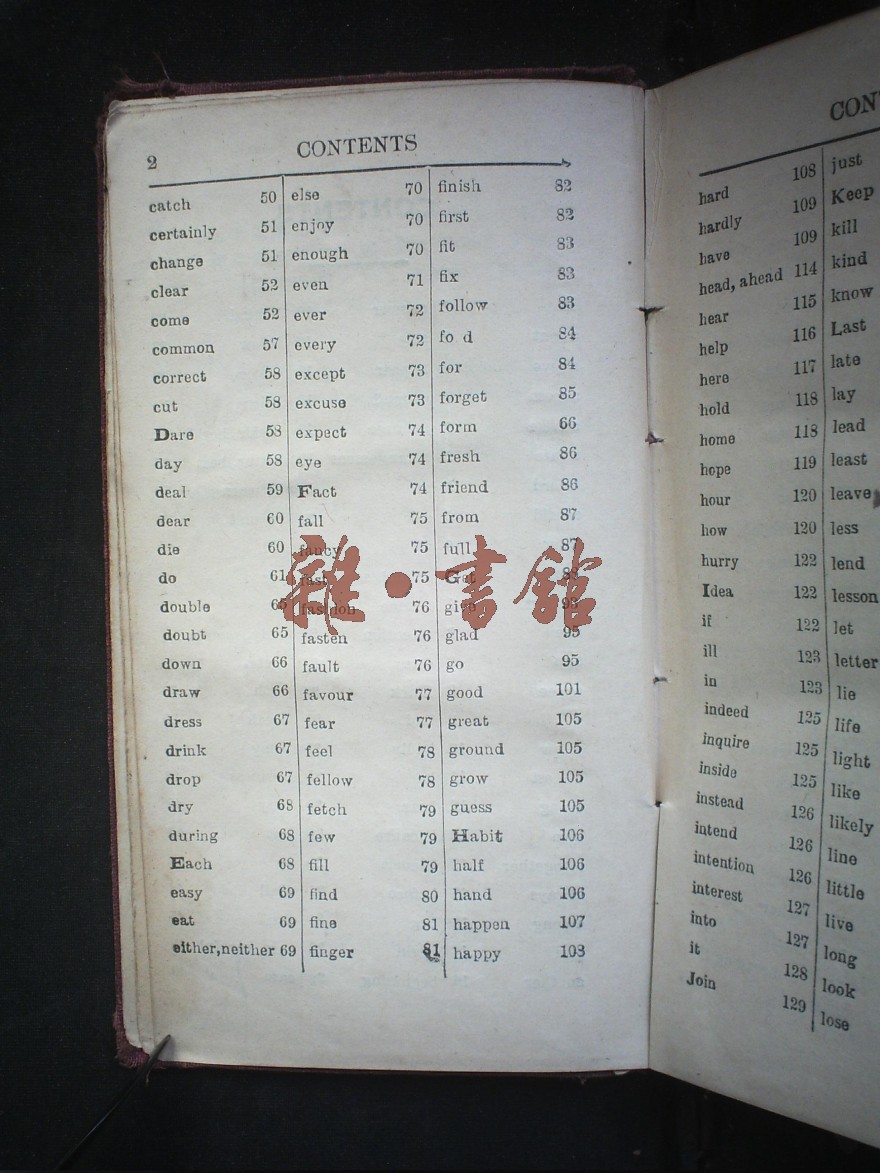 2
CONTENTS
catch 50
certainly 51
change 51
clear 52
come 52
common 57
correct 58
cut 58
Dare 58
day 58
deal 59
dear 60
die 60
do 61
double 65
doubt 65
down 66
draw 66
dress 67
drink 67
drop 67
dry 68
during 68
Each 68
easy 69
eat 69
either,neither 69
else 70
enjoy 70
enough 70
even 71
ever 72
every 72
except 73
excuse 73
expect 74
eye 74
Fact 74
fall 75
fancy 75
fast 75
fashion 76
fasten 76
fault 76
favour 77
fear 77
feel 78
fellow 78
fetch 79
few 79
fill 79
find 80
fine 81
finger 81
finish 82
first 82
fit 83
fix 83
follow 83
fo d 84
for 84
forget 85
form 66
fresh 86
friend 86
from 87
full 87
Get 88
give 93
glad 95
go 95
good 101
great 105
ground 105
grow 105
guess 105
Habit 106
half 106
hand 106
happen 107
happy 108
雜·書館
CONT
hard 108
hardly 109
have 109
head, ahead 114
hear 115
help 116
here 117
hold 118
home 118
hope 119
hour 120
how 120
hurry 122
Idea 122
if 122
ill 123
in 123
indeed 125
inquire 125
inside 125
instead 126
intend 126
intention 126
interest 127
into 127
it 128
Join 129
just
Keep
kill
kind
know
Last
late
lay
lead
least
leave
less
lend
lesson
let
letter
lie
life
light
like
likely
line
little
live
long
look
lose